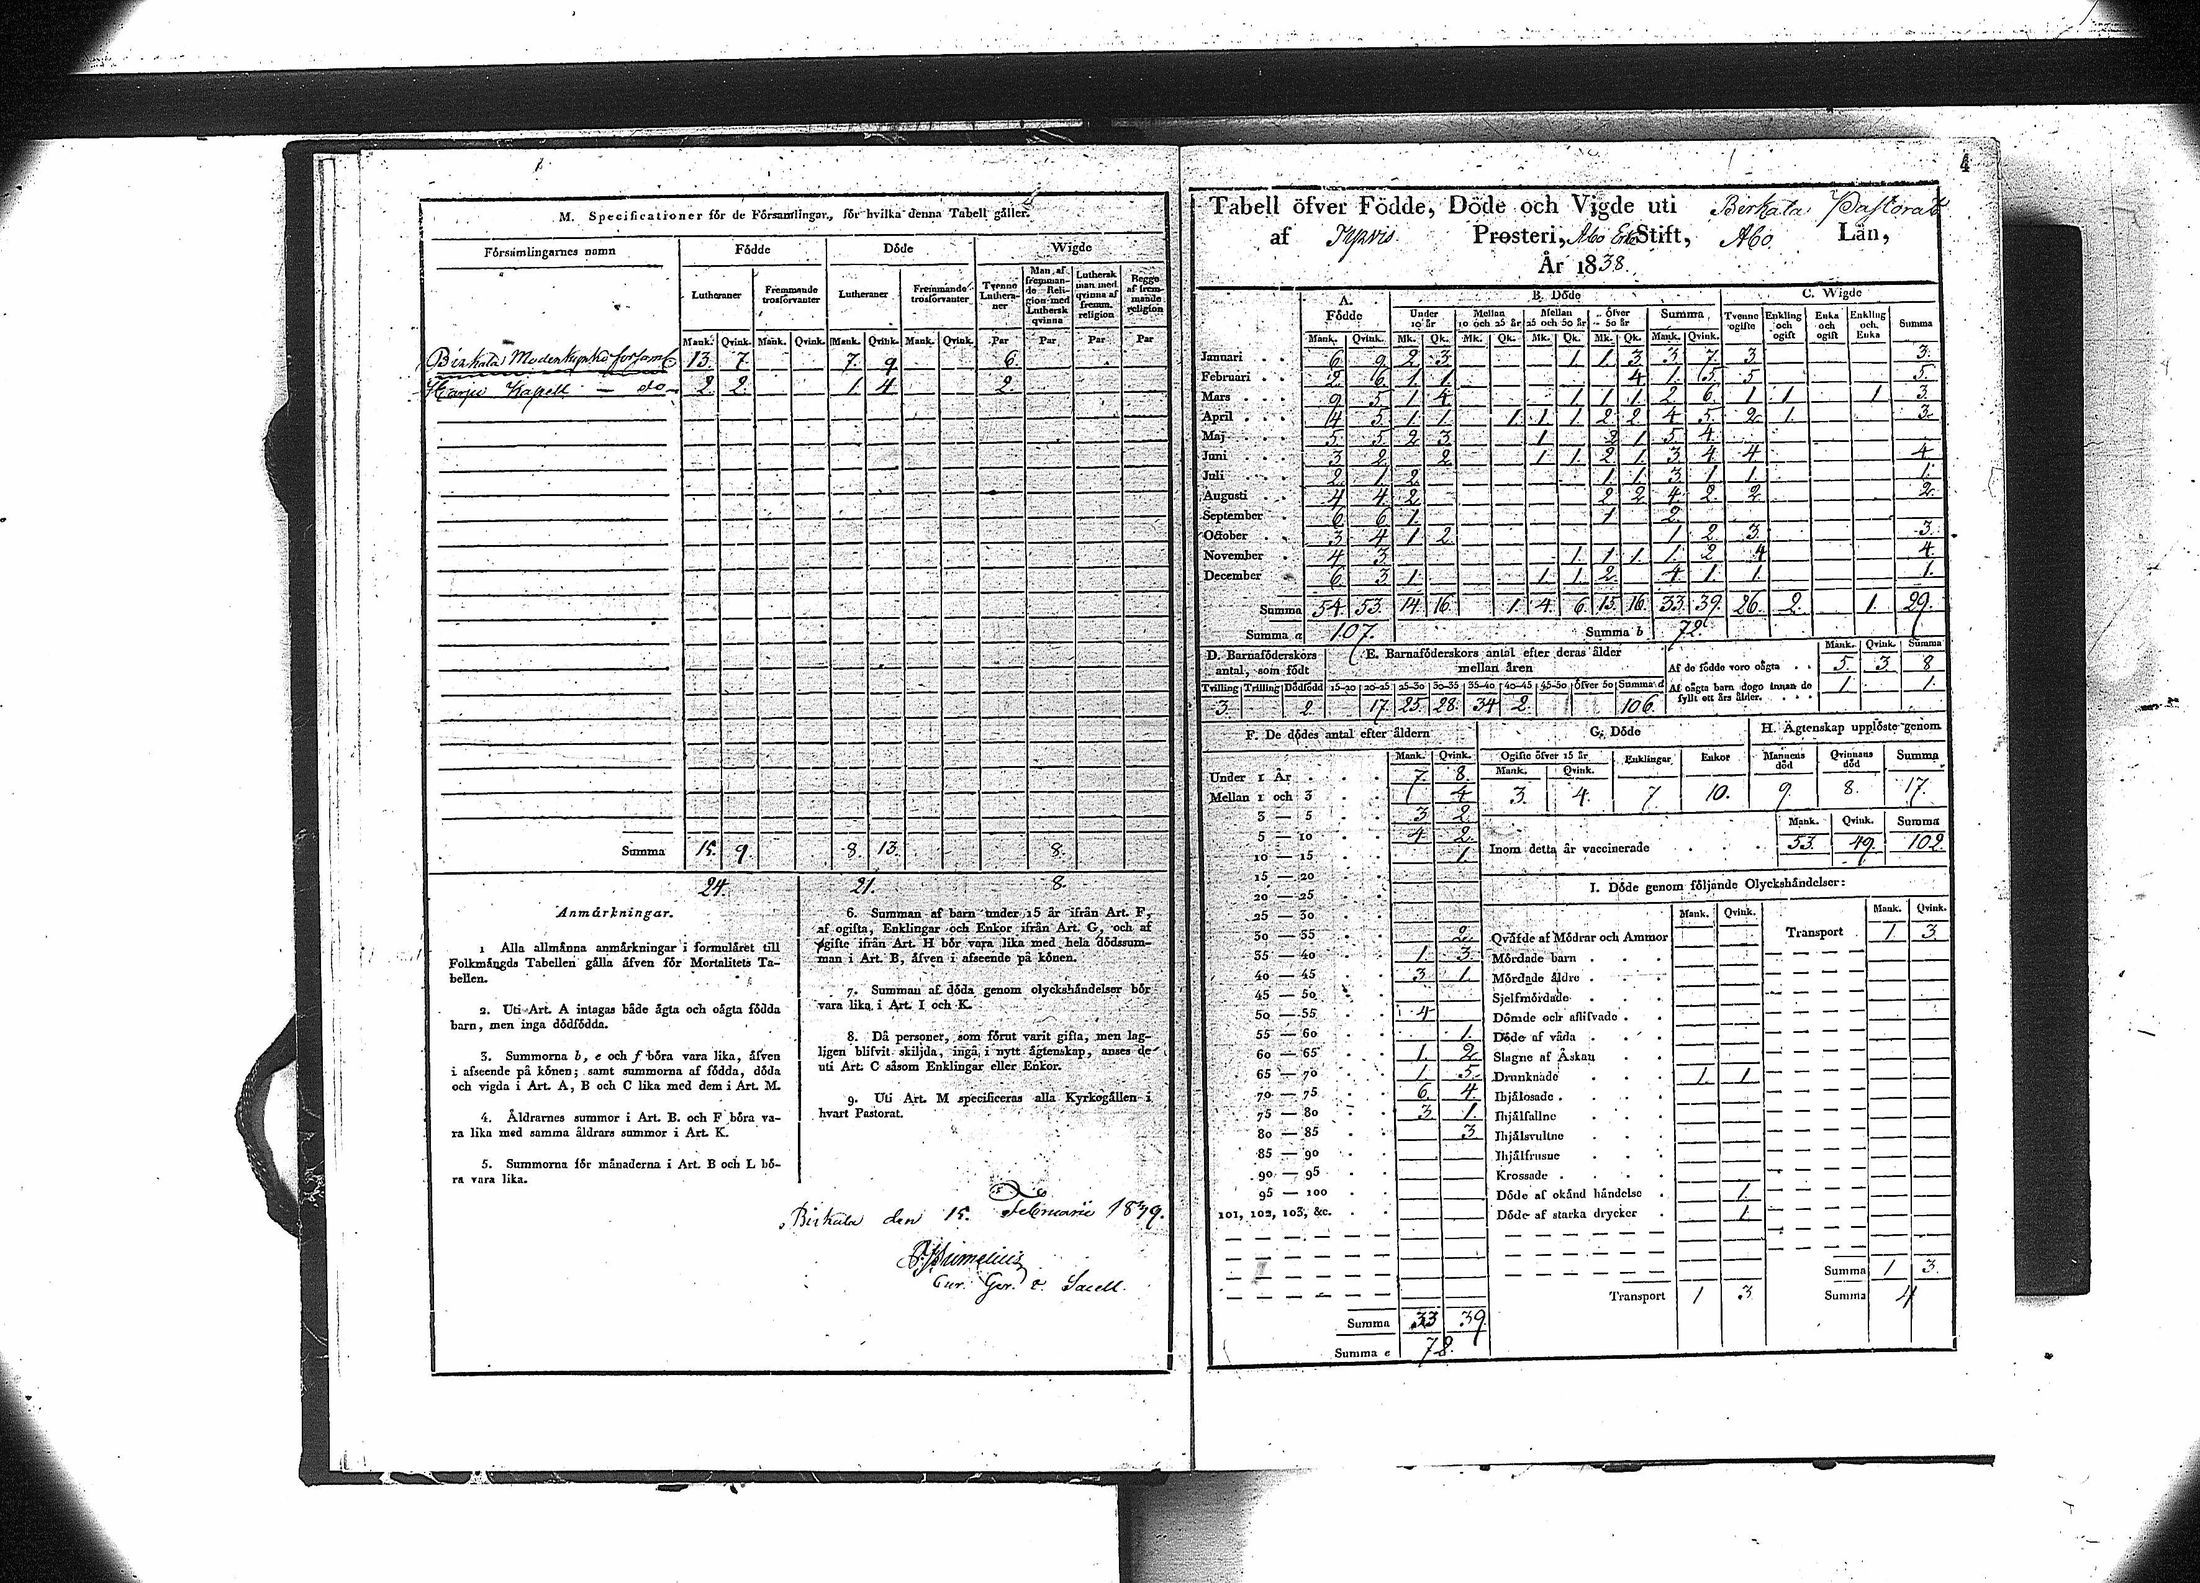 M. Specificationer för de Församlingar, för hvilka denna Tabell gäller.
Församlingarnes namn Födde Döde Wigde
Lutheraner Fremmande trosförvanter Lutheraner Fremmande trosförvanter Tvenne Lutheraner Man af fremmande Religion med Luthersk qvinna Luthersk man med qvinna af fremm. religion Begge af fremmande religion
Mank. Qvink. Mank. Qvink. Mank. Qvink. Mank. Qvink. Par Par Par Par
Birkala Moderkyrko församl 13. 7. 7. 9. 6.
Harju Kapell — do — 2. 2. 1. 4. 2.
Summa 15. 9. 8. 13. 8.
24. 21. 8.
Anmärkningar.
1 Alla allmänna anmärkningar i formuläret till
Folkmängds Tabellen gälla äfven för Mortalitets Ta-
bellen.
2. Uti Art. A intagas både ägta och oägta födda
barn, men inga dödfödda.
3. Summorna b, e och f böra vara lika, äfven
i afseende på könen; samt summorna af födda, döda
och vigda i Art. A, B och C lika med dem i Art. M.
4. Åldrarnes summor i Art. B. och F böra va-
ra lika med samma åldrars summor i Art. K.
5. Summorna för månaderna i Art. B och L bö-
ra vara lika.
6. Summan af barn under 15 år ifrån Art. F,
af ogifta, Enklingar och Enkor ifrån Art. G, och af
gifte ifrån Art. H bör vara lika med hela dödssum-
man i Art. B, äfven i afseende på könen.
7. Summan af döda genom olyckshändelser bör
vara lika i Art. I och K.
8. Då personer, som förut varit gifta, men lag-
ligen blifvit skiljda, ingå i nytt ägtenskap, anses de
uti Art. C såsom Enklingar eller Enkor.
9. Uti Art. M specificeras alla Kyrkogällen i
hvart Pastorat.
Birkala den 15. Februarii 1839.
Cur. Ger. o. Sacell.
4
Tabell öfver Födde, Döde och Vigde uti Birkala Pastorat
af Tyrvis Prosteri, Abo Erke Stift, Abo Län,
År 1838.
A. Födde B. Döde C. Wigde
Under 10 år Mellan 10 och 25 år Mellan 25 och 50 år öfver 50 år Summa Tvenne ogifte Enkling och ogift Enka och ogift Enkling och Enka Summa
Mank. Qvink. Mk. Qk. Mk. Qk. Mk. Qk. Mk. Qk. Mank. Qvink.
Januari 6 9 2 3 1 1 3 3 7 3 3.
Februari 2 6 1 1 4 1 5 5 5.
Mars 9 5 1 4 1 1 1 2 6 1 1 1 3.
April 14 5 1 1 1 1 1 2 2 4 5 2 1 3.
Maj 5 5 2 3 1 2 1 5 4
Juni 3 2 2 1 1 2 1 3 4 4 4
Juli 2 1 2 1 1 3 1 1 1.
Augusti 4 4 2 2 2 4 2 2 2.
September 6 6 1 1 2
October 3 4 1 2 1 2 3 3.
November 4 3 1 1 1 1 2 4 4.
December 6 3 1 1 1 2 4 1 1 1.
Summa 54 53 14 16 1 4 6 15 16 33 39 26 2 1 29.
Summa a 107. Summa b 72.
D. Barnaföderskors antal, som födt E. Barnaföderskors antal efter deras ålder mellan åren Mank. Qvink. Summa
Af de födde voro oägta 5. 3 8
Af oägta barn dogo innan de fyllt ett års ålder. 1. 1.
Tvilling Trilling Dödfödd 15-20 20-25 25-30 30-35 35-40 40-45 45-50 öfver 50 Summa d
3. 2. 17. 25. 28. 34 2. 106.
F. De dödes antal efter åldern G. Döde H. Ägtenskap upplöste genom
Mank. Qvink. Ogifte öfver 15 år Enklingar Enkor Mannens död Qvinnans död Summa
Mank. Qvink.
3. 4. 7. 10. 9. 8. 17.
Under 1 År 7. 8.
Mellan 1 och 3 4
3 — 5 3 2
5 — 10 4 2.
10 — 15 1.
15 — 20
20 — 25
25 — 30
30 — 35 2.
35 — 40 1. 3
40 — 45 3. 1.
45 — 50
50 — 55 4
55 — 60 1.
60 — 65 1. 2
65 — 70 1. 5
70 — 75 6 4.
75 — 80 3. 1.
80 — 85 3
85 — 90
90 — 95
95 — 100
101, 102, 103, &c.
Summa 33 39.
Summa e 72.
Mank. Qvink. Summa
Inom detta år vaccinerade 53. 49. 102.
I. Döde genom följande Olyckshändelser:
Mank. Qvink. Mank. Qvink.
Qväfde af Mödrar och Ammor Transport 1. 3.
Mördade barn
Mördade äldre
Sjelfmördade
Dömde och aflifvade
Döde af våda
Slagne af Åskan
Drunknade 1. 1
Ihjälosade
Ihjälfallne
Ihjälsvultne
Ihjälfrusne
Krossade
Döde af okänd händelse 1.
Döde af starka drycker 1.
Summa 1 3.
Transport 1 3. Summa 4